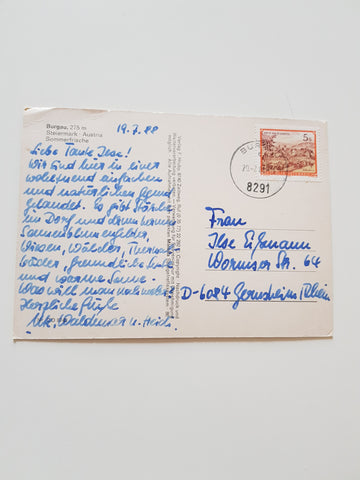 Burgau, 275 m
Steiermark - Austria
Sommerfrische
19.7.88
Liebe Tante Ilse!
Wir sind hier in einer
wohltuend einfachen
und natürlichen Gegend
gelandet. Es gibt Störche
im Dorf und drum herum
Sonnenblumenfelder,
Wiesen, Wälder, Thermal
bäder, freundliche Leute
und warme Sonne.
Was will man noch mehr?
Herzliche Grüße
Waldemar u. Heidi
5 S
BURGAU
8291
Frau
Ilse Eißmann
Wormser Str. 64
D-6084 Gernsheim/Rhein